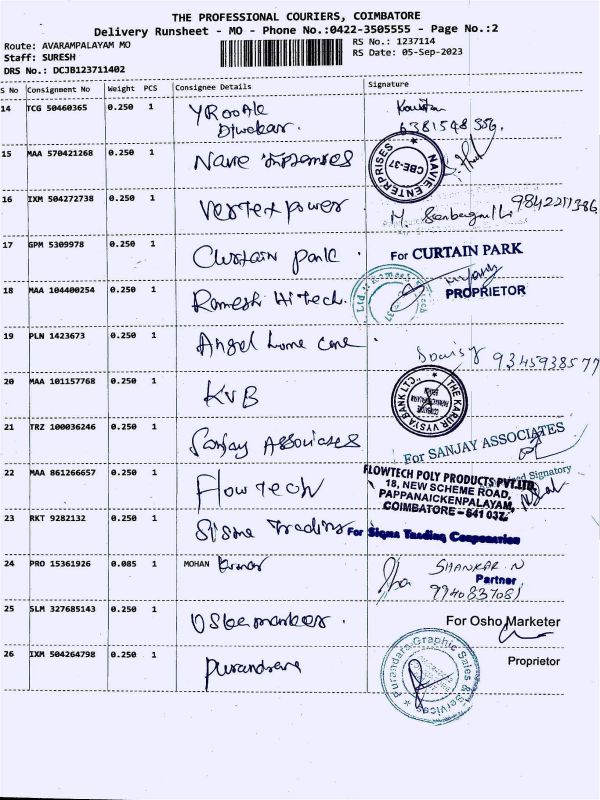 THE PROFESSIONAL COURIERS, COIMBATORE
Delivery Runsheet - MO - Phone No.:0422-3505555 - Page No.:2
Route: AVARAMPALAYAM MO RS No.: 1237114
Staff: SURESH RS Date: 05-Sep-2023
DRS No.: DCJB123711402
S No Consignment No Weight PCS Consignee Details Signature
14 TCG 50460365 0.250 1 Diwakar. 6381548356.
15 MAA 570421268 0.250 1 Navie Enterprises NAVIE ENTERPRISES CBE-37
16 IXM 504272738 0.250 1 Vertex power M. 9842211386
17 GPM 5309978 0.250 1 Curtain park For CURTAIN PARK
PROPRIETOR
18 MAA 104400254 0.250 1 Ramesh Hitech.
19 PLN 1423673 0.250 1 Angel home care 9345938577
20 MAA 101157768 0.250 1 KVB THE KARUR VYSYA BANK LTD.,
21 TRZ 100036246 0.250 1 Sanjay Associates For SANJAY ASSOCIATES
Signatory
22 MAA 861266657 0.250 1 Flowtech FLOWTECH POLY PRODUCTS PVT.LTD.
18, NEW SCHEME ROAD,
PAPPANAICKENPALAYAM,
COIMBATORE - 641 037.
23 RKT 9282132 0.250 1 Sigma Trading For Sigma Trading Corporation
24 PRO 15361926 0.085 1 MOHAN Kumar SHANKAR N
Partner
9940837081
25 SLM 327685143 0.250 1 Osho marketer. For Osho Marketer
Proprietor
26 IXM 504264798 0.250 1 Purandara Purandara Graphic Sales & Services